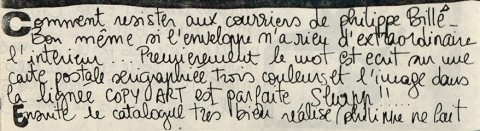 Comment resister aux courriers de philippe Billé _
Bon même si l'enveloppe n'a rien d'extraordinaire
l'interieur ... Premierement le mot est ecrit sur une
carte postale serigraphiee trois couleurs et l'image dans
la lignee COPY ART est parfaite Slurpp !!
Ensuite le catalogue tres bien réalisé / philippe ne fait